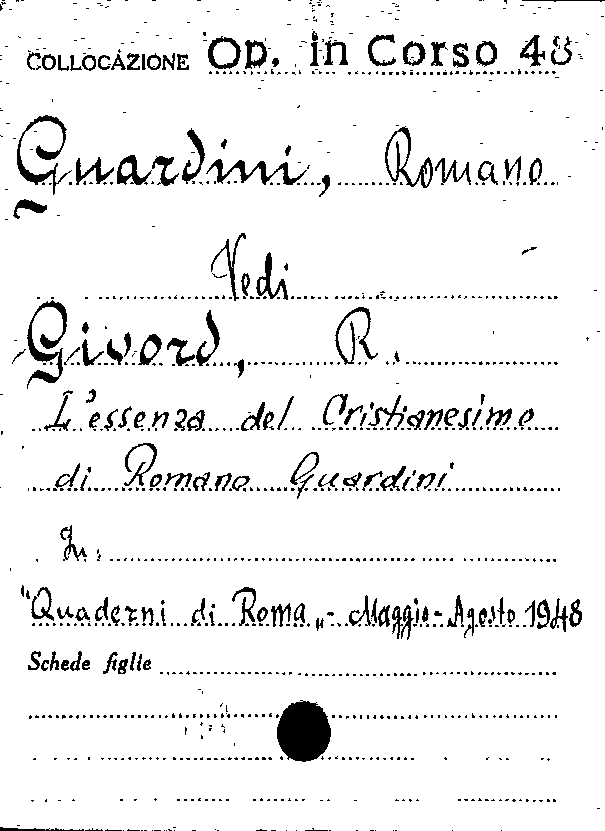 COLLOCAZIONE Op. in Corso 48
Guardini, Romano
Vedi
Givord, R.
L'essenza del Cristianesimo
di Romano Guardini
In:
"Quaderni di Roma„ - Maggio-Agosto 1948
Schede figlie